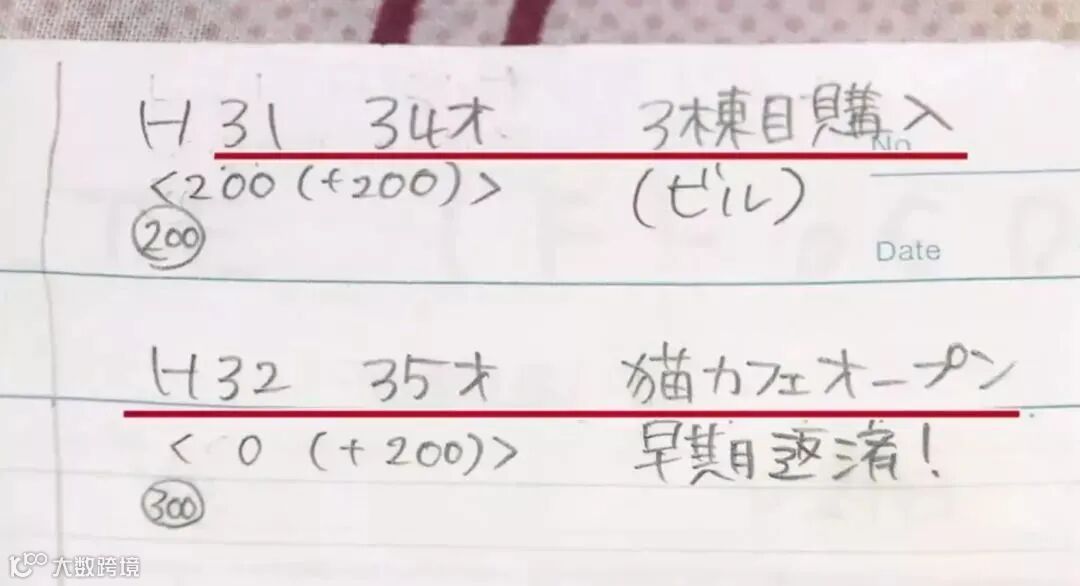 H31 34才 3棟目購入
No
<200(+200)> (ビル)
200
Date
H32 35才 猫カフェオープン
<0(+200)> 早期返済!
300
大数跨境